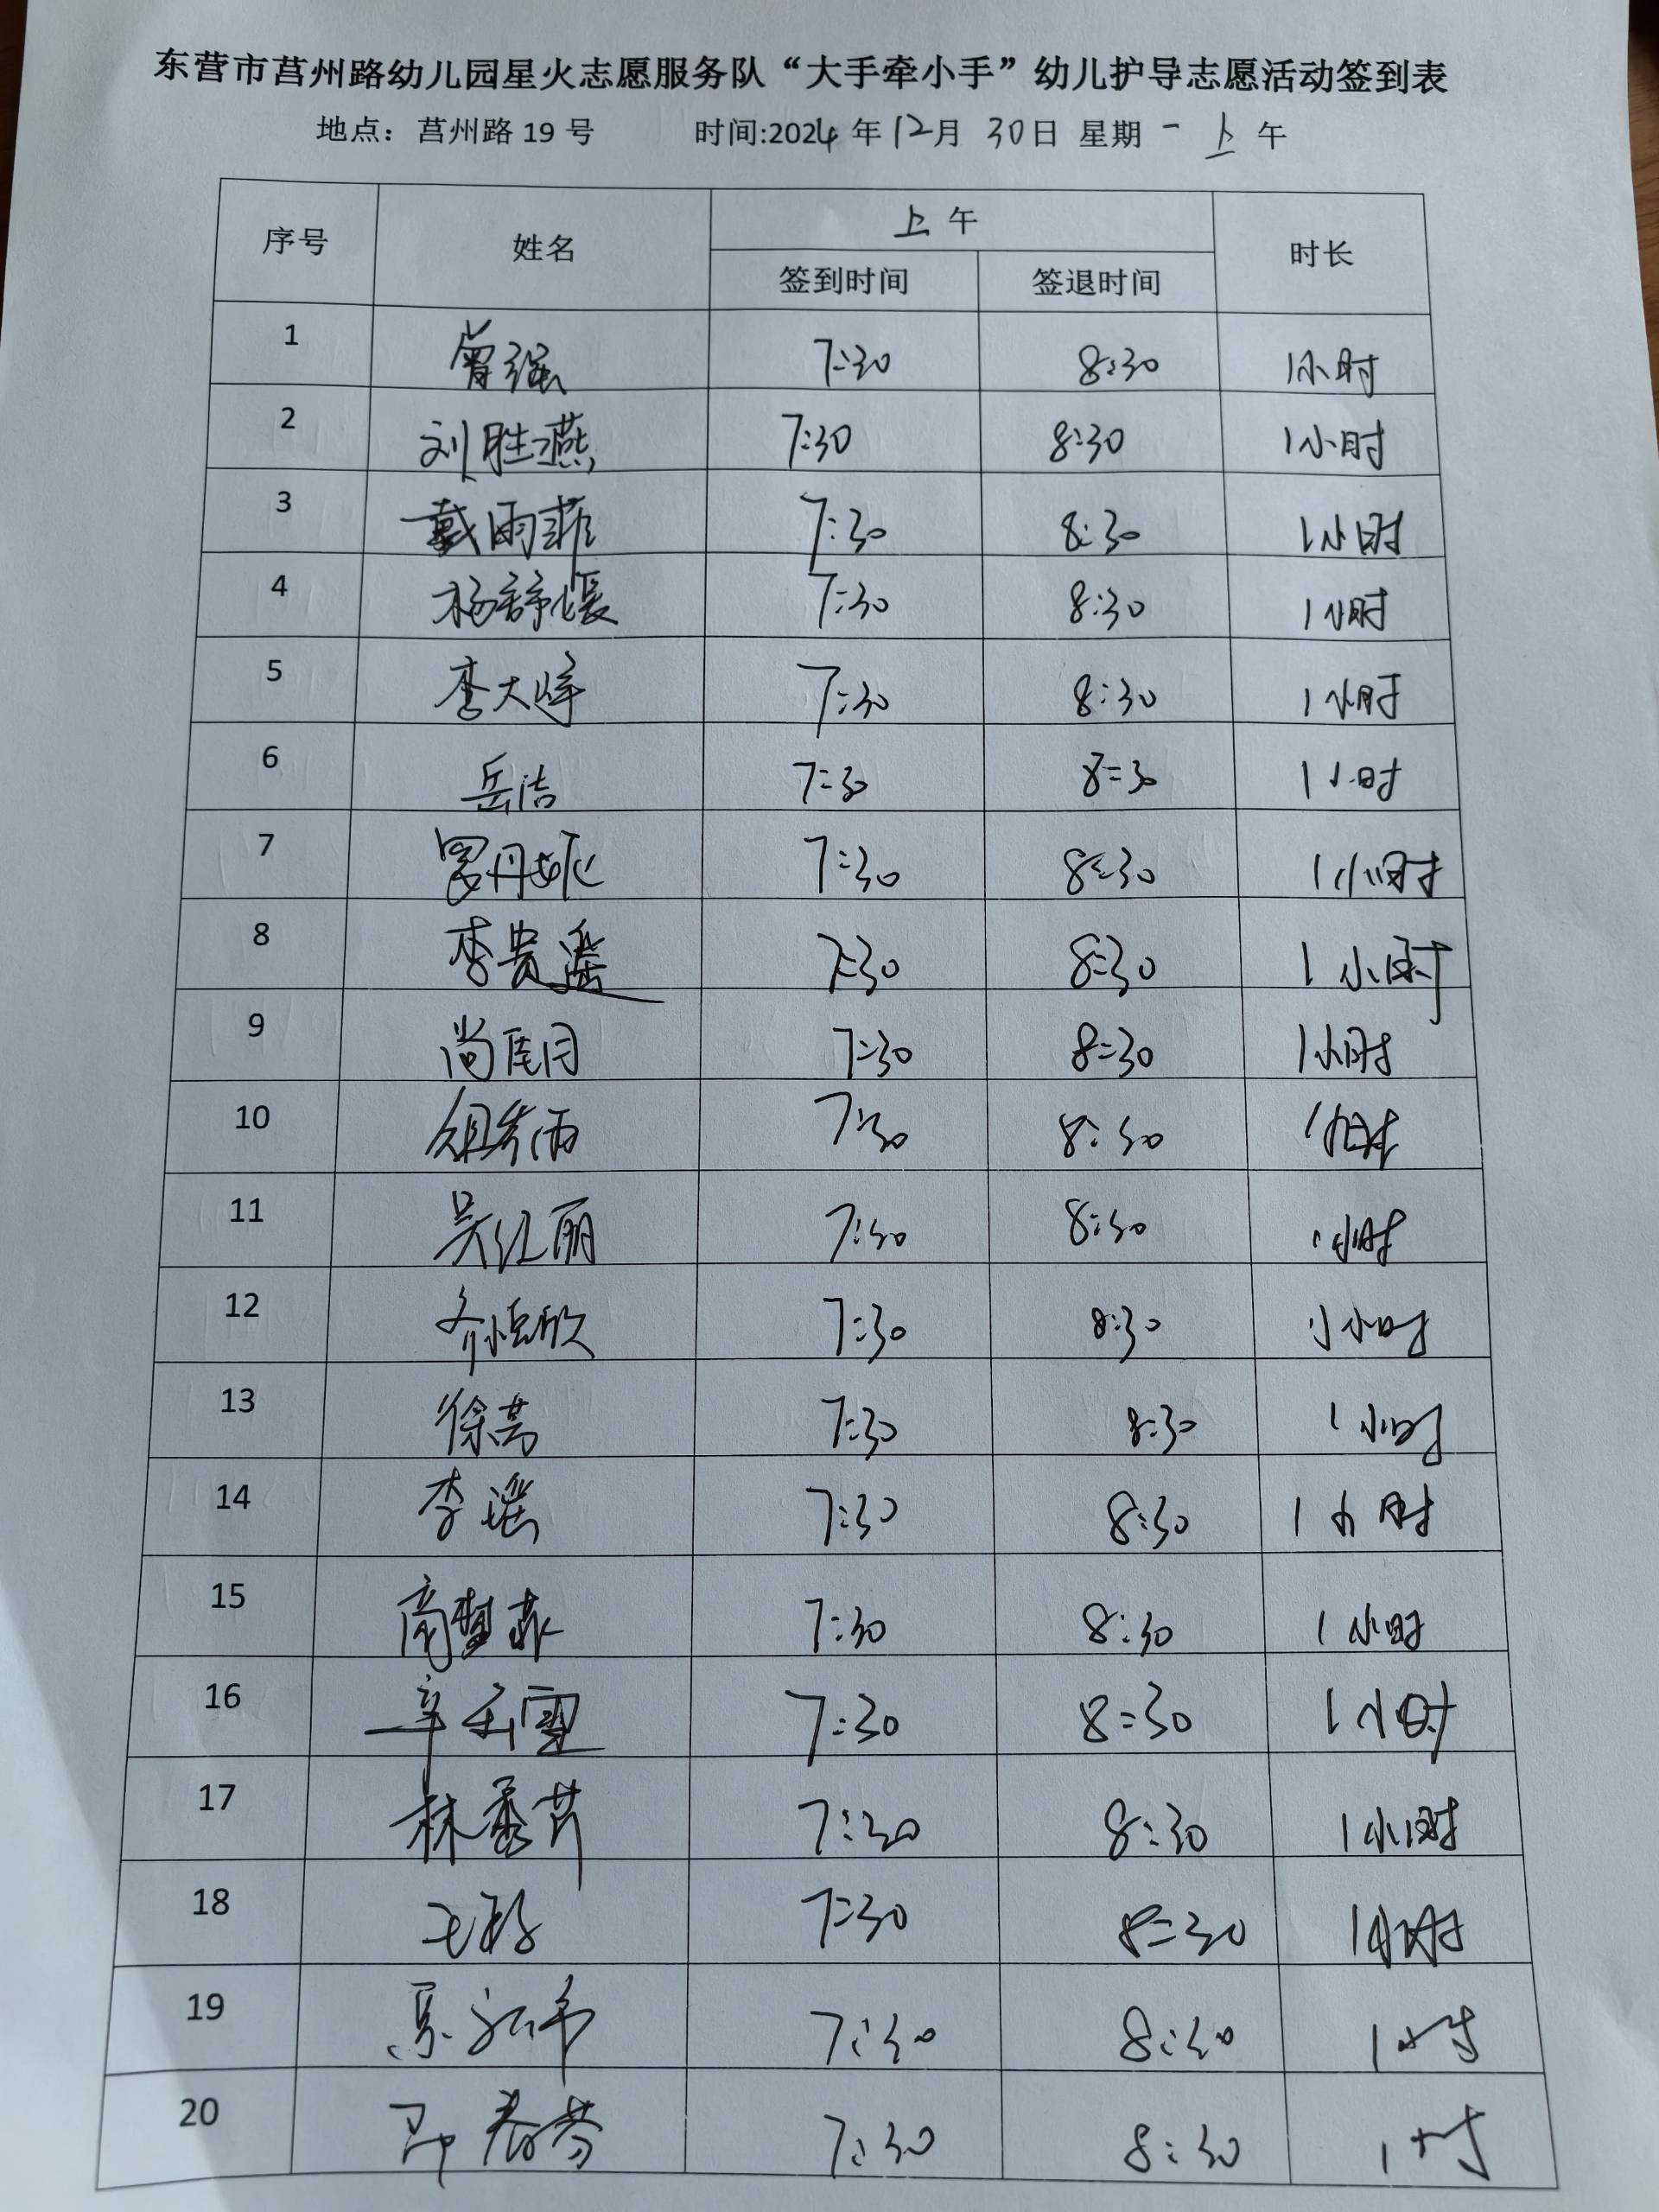 东营市莒州路幼儿园星火志愿服务队“大手牵小手”幼儿护导志愿活动签到表
地点：莒州路 19 号 时间:2024 年 12月 30日 星期 一 上 午
序号 姓名 上 午 时长
签到时间 签退时间
1 曾强 7:30 8:30 1小时
2 刘胜燕 7:30 8:30 1小时
3 戴雨菲 7:30 8:30 1小时
4 杨舒媛 7:30 8:30 1小时
5 李大峰 7:30 8:30 1小时
6 岳洁 7:30 8:30 1小时
7 丹 7:30 8:30 1小时
8 李贵遥 7:30 8:30 1小时
9 尚 7:30 8:30 1小时
10 雨 7:30 8:30 1小时
11 吴红丽 7:30 8:30 1小时
12 齐恒欣 7:30 8:30 1小时
13 徐嵩 7:30 8:30 1小时
14 李瑶 7:30 8:30 1小时
15 商梦菲 7:30 8:30 1小时
16 辛雪 7:30 8:30 1小时
17 林秀芹 7:30 8:30 1小时
18 7:30 8:30 1小时
19 7:30 8:30 1小时
20 春芬 7:30 8:30 1小时